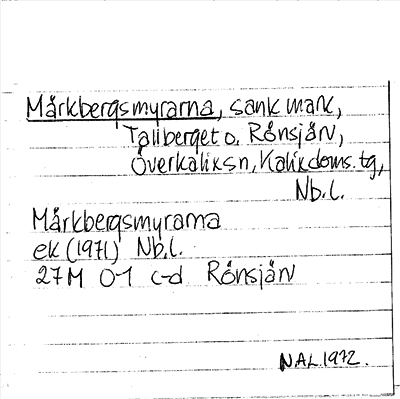 Mårkbergsmyrarna, sank mark,
Tallberget o. Rånsjärv,
Överkalix sn, Kalix doms. tg,
Nb.l.
Mårkbergsmyrarna
ek (1971) Nb.l.
27M 0-1 c-d Rånsjärv
NAL.1972.